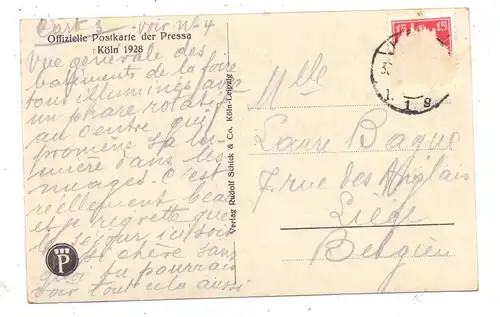 Cart 3 voir No 4
Offizielle Postkarte der Pressa
Köln 1928
Vue générale des
batiments de la foire
tous illuminés avec
un phare rotatif
au centre qui
promène sa lu-
mière dans les
nuages. C'est
réellement beau
et je regrette que
le séjour ici soit
si chère sans
quoi tu pourrais
voir tout cela aussi
P
Verlag Rudolf Schick & Co. Köln-Leipzig
15 15
1.
Mlle
Laure Baque
7 rue des Anglais
Liége
Belgien